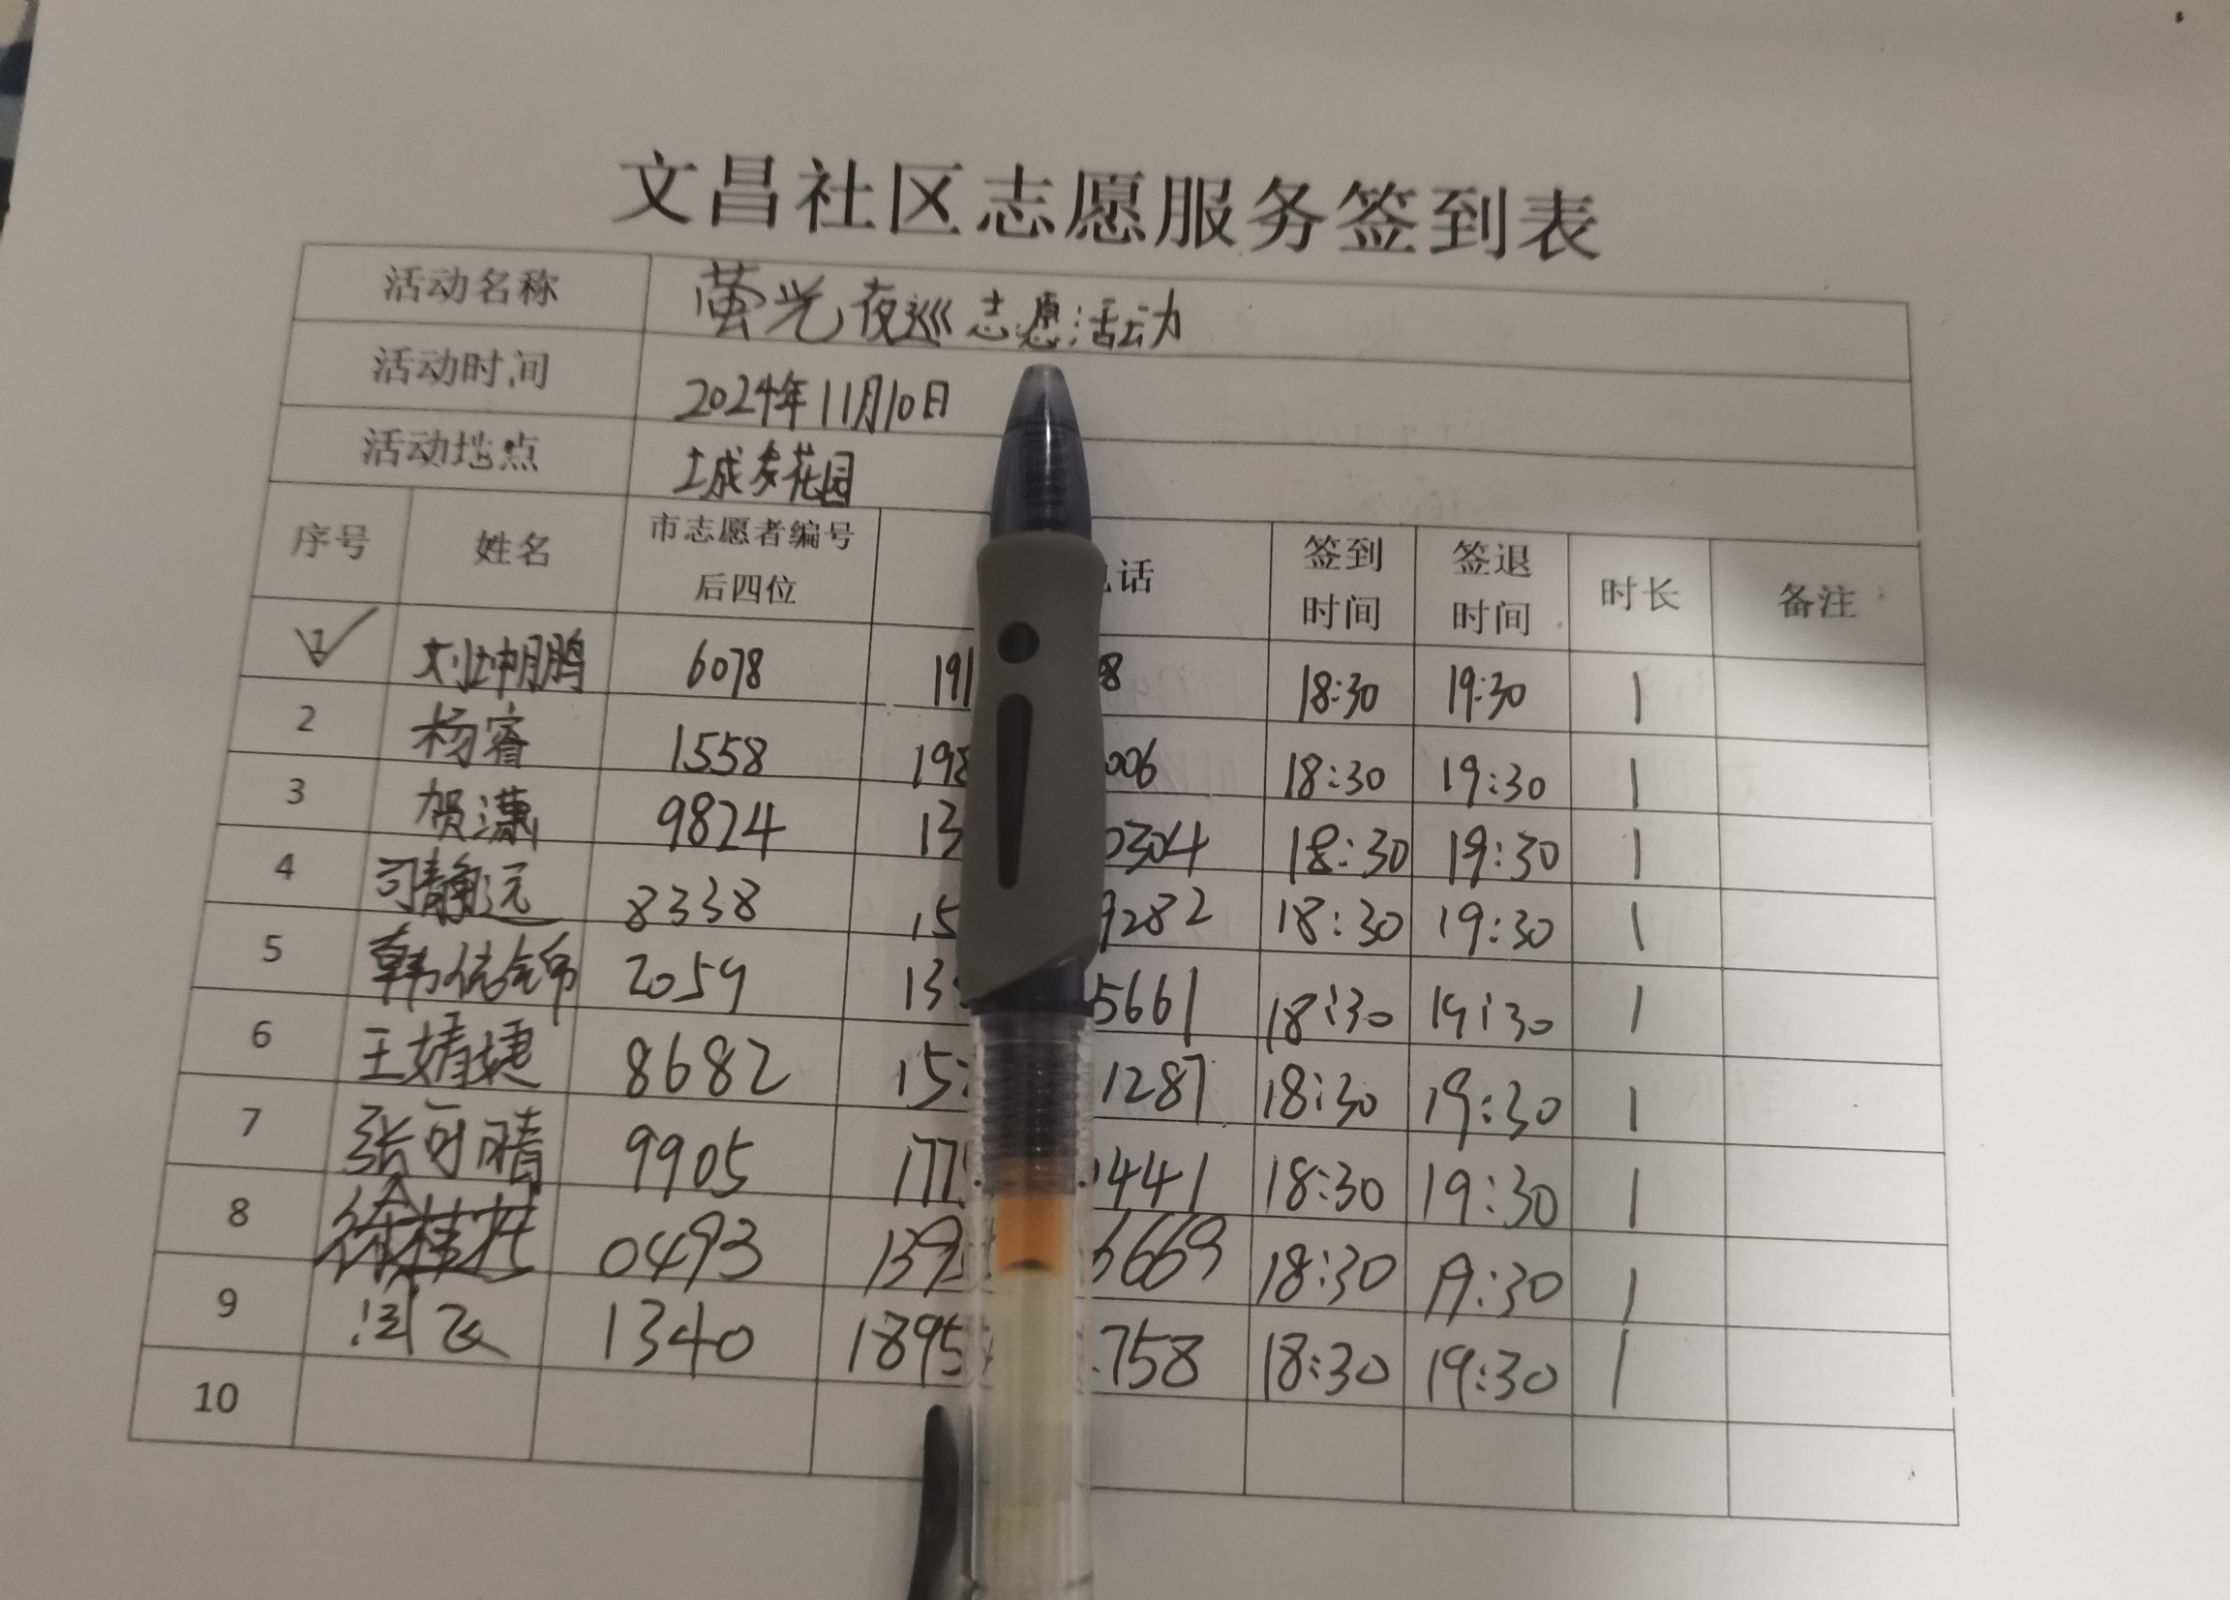 文昌社区志愿服务签到表
活动名称 萤光夜巡志愿活动
活动时间 2024年11月10日
活动地点 土城岁花园
序号 姓名 市志愿者编号后四位 话 签到时间 签退时间 时长 备注
1 刘坤鹏 6078 191 8 18:30 19:30 1
2 杨睿 1558 198 006 18:30 19:30 1
3 贺潇 9824 13 0304 18:30 19:30 1
4 司静远 8338 15 9282 18:30 19:30 1
5 韩信锦 2059 13 5661 18:30 19:30 1
6 王婧婕 8682 15 1287 18:30 19:30 1
7 张可晴 9905 177 441 18:30 19:30 1
8 徐桂花 0493 139 6669 18:30 19:30 1
9 1340 1895 758 18:30 19:30 1
10